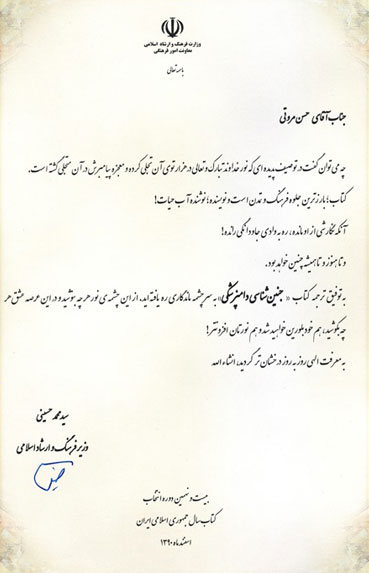 وزارت فرهنگ و ارشاد اسلامی
معاونت امور فرهنگی
باسمه تعالی
جناب آقای حسن مروتی
چه می‌توان گفت در توصیف پدیده‌ای که نور خداوند تبارک و تعالی در هزار توی آن تجلی کرده و معجزه پیامبرش در آن متجلی گشته است.
کتاب؛ بارزترین جلوه فرهنگ و تمدن است و نویسنده؛ نوشنده آب حیات!
آنکه نگارشی از او مانده، ره به وادی جاودانگی رانده!
و تا بوده و تا همیشه چنین خواهد بود.
به توفیق ترجمه کتاب « جنین شناسی دامپزشکی» به سرچشمه ماندگاری ره یافته‌اید، از این چشمه‌ی نور هر چه بنوشید و در این عرصه عشق هر
چه بکوشید، هم خود بلورین خواهید شد و هم نورتان افزونتر!
به معرفت الهی روز به روز درخشان‌تر گردید، انشاء الله
سید محمد حسینی
وزیر فرهنگ و ارشاد اسلامی
بیست و نهمین دوره انتخاب
کتاب سال جمهوری اسلامی ایران
اسفند ماه ۱۳۹۰